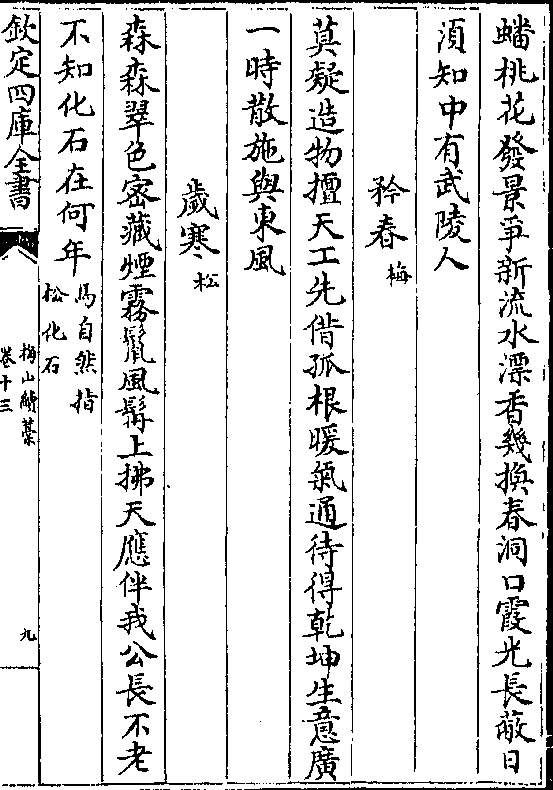 蟠桃花發景爭新流水漂香幾換春洞口霞光長蔽日
須知中有武陵人
矜春梅
莫疑造物擅天工先借孤根暖氣通待得乾坤生意廣
一時散施與東風
歲寒松
森森翠色密藏煙霧鬛風髯上拂天應伴我公長不老
不知化石在何年馬自然指
松化石
欽定四庫全書
梅山續藁
卷十三
九